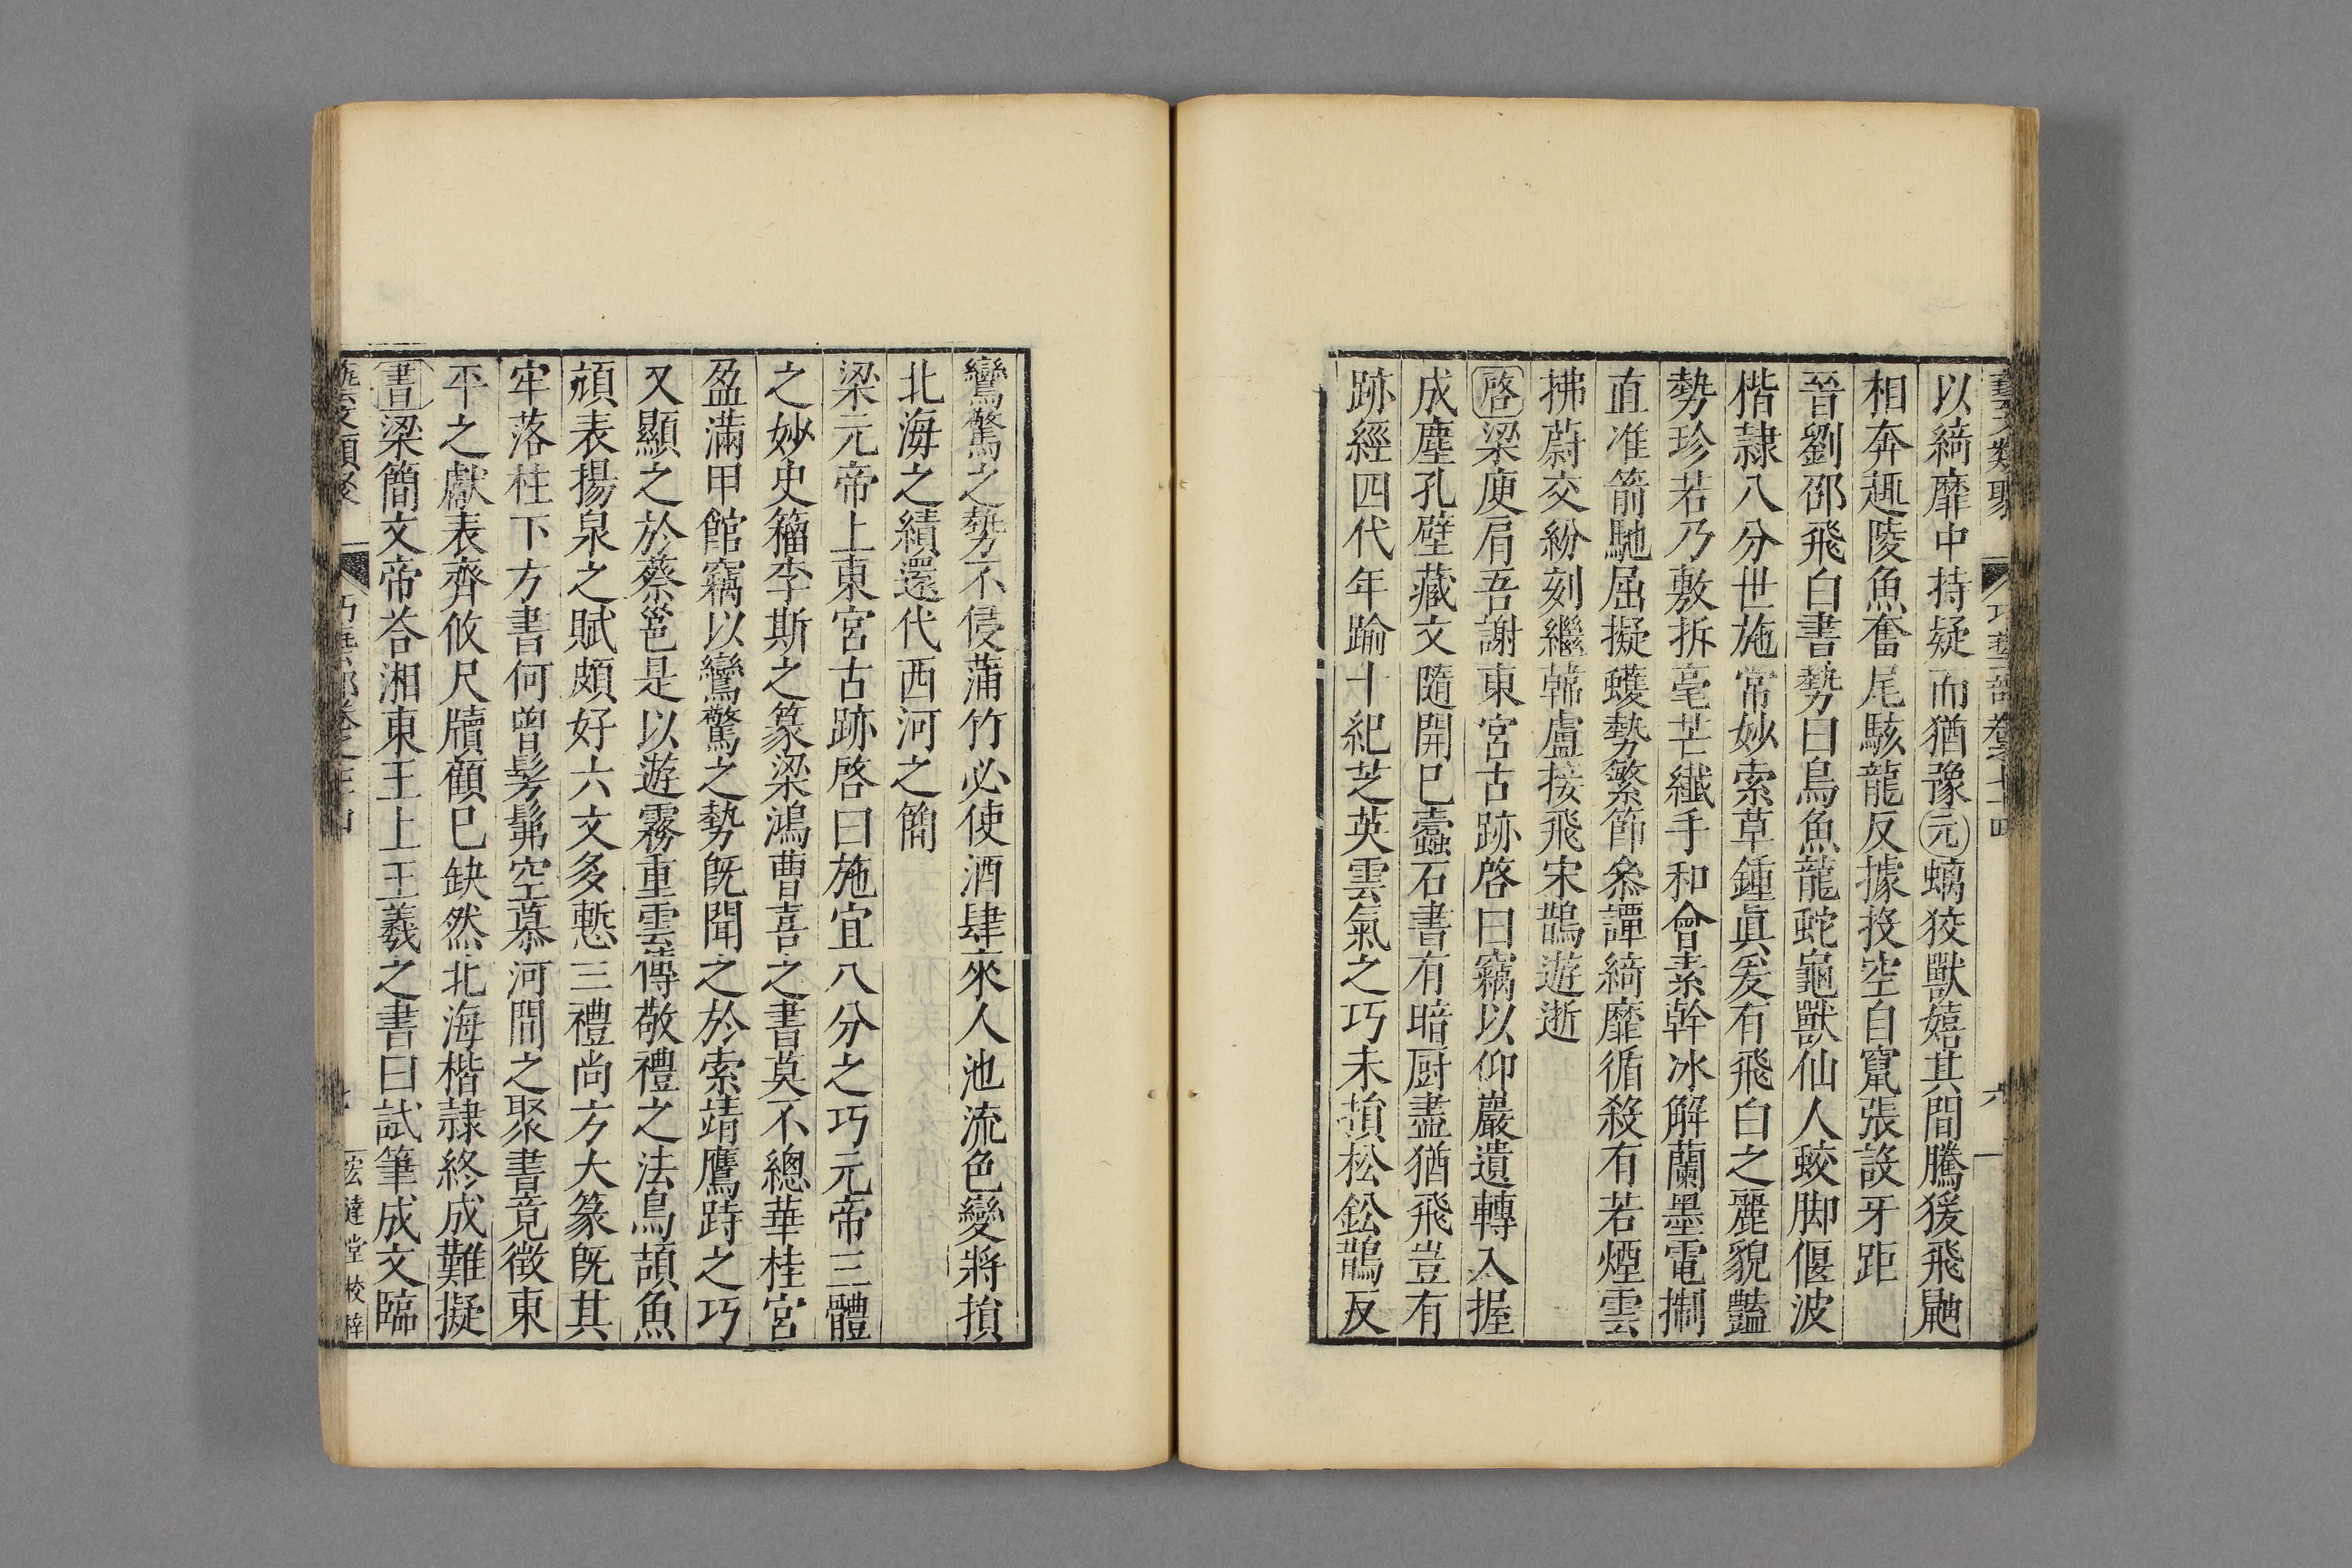 藝文類聚 巧藝部卷七十四 六
以綺靡中持疑而猶豫元螭狡獸嬉其間騰猨飛鼬
相奔趣陵魚奮尾駭龍反據投空自竄張設牙距
晉劉邵飛白書勢曰鳥魚龍蛇龜獸仙人蛟脚偃波
楷隷八分世施常妙索草鍾眞爰有飛白之麗貌豔
勢珍若乃敷拆毫芒纎手和會素幹冰解蘭墨電掣
直准箭馳屈擬蠖勢繁節叅譚綺靡循殺有若煙雲
拂蔚交紛刻繼韓盧接飛宋鵲遊逝
啓梁庾肩吾謝東宮古跡啓曰竊以仰巖遺轉入握
成塵孔壁藏文隨開已蠹石書有暗厨盡猶飛豈有
跡經四代年踰十紀芝英雲氣之巧未損松鈆鵲反
鸞驚之勢不侵蒲竹必使酒肆來人池流色變將損
北海之績還代西河之簡
梁元帝上東宮古跡啓曰施宜八分之巧元帝三體
之妙史籀李斯之篆梁鴻曹喜之書莫不總華桂宮
盈滿甲館竊以鸞驚之勢旣聞之於索靖鷹跱之巧
又顯之於蔡邕是以遊霧重雲傳敬禮之法鳥頡魚
頏表揚泉之賦頗好六文多慙三禮尚方大篆旣其
牢落柱下方書何曾髣髴空慕河間之聚書竟徵東
平之獻表齊攸尺牘顧已缺然北海楷隷終成難擬
書梁簡文帝荅湘東王上王羲之書曰試筆成文臨
藝文類聚 巧藝部卷七十四 七 宏達堂校梓